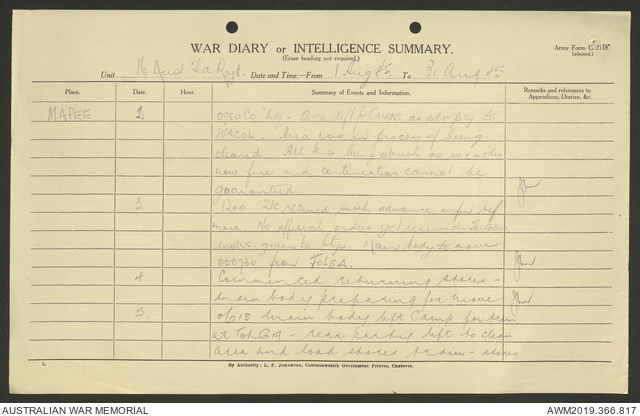 WAR DIARY or INTELLIGENCE SUMMARY.
(Erase heading not required.)
Army Form C. 2118.
(adapted.)
Unit 16 Aust Regt. Date and Time.—From 1 Aug 45 To 31 Aug 45
Place. Date. Hour. Summary of Events and Information. Remarks and references to Appendices, Diaries, &c.
MAPEE 2 0950 CO left CAIRNS as adv pty to
WACOL. Area now in process of being
cleared. All tents being struck as weather
now fine and continuation cannot be
guaranteed.
3 1200 2IC returned with advance
move No official orders yet received.
given to btys. Main body to move
050730 from TOLGA.
4 Commenced returning stores -
main body preparing for move
5. 0615 main body left Camp for train
at TOLGA - rear party left to clean
area and load stores train - stores
By Authority: L. F. JOHNSTON, Commonwealth Government Printer, Canberra.
AUSTRALIAN WAR MEMORIAL
AWM2019.366.817